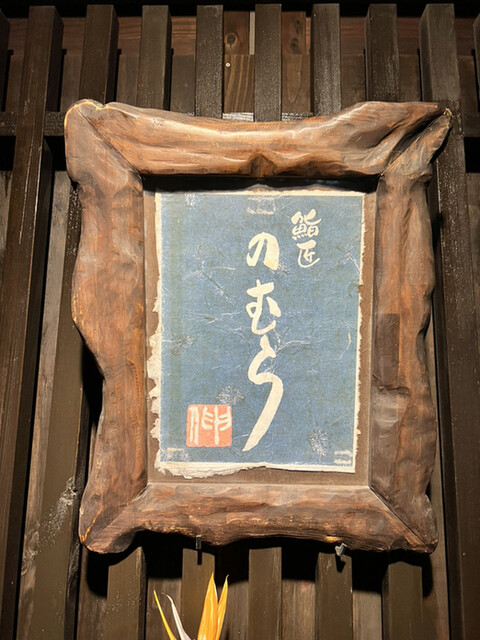 鮨匠
のむら